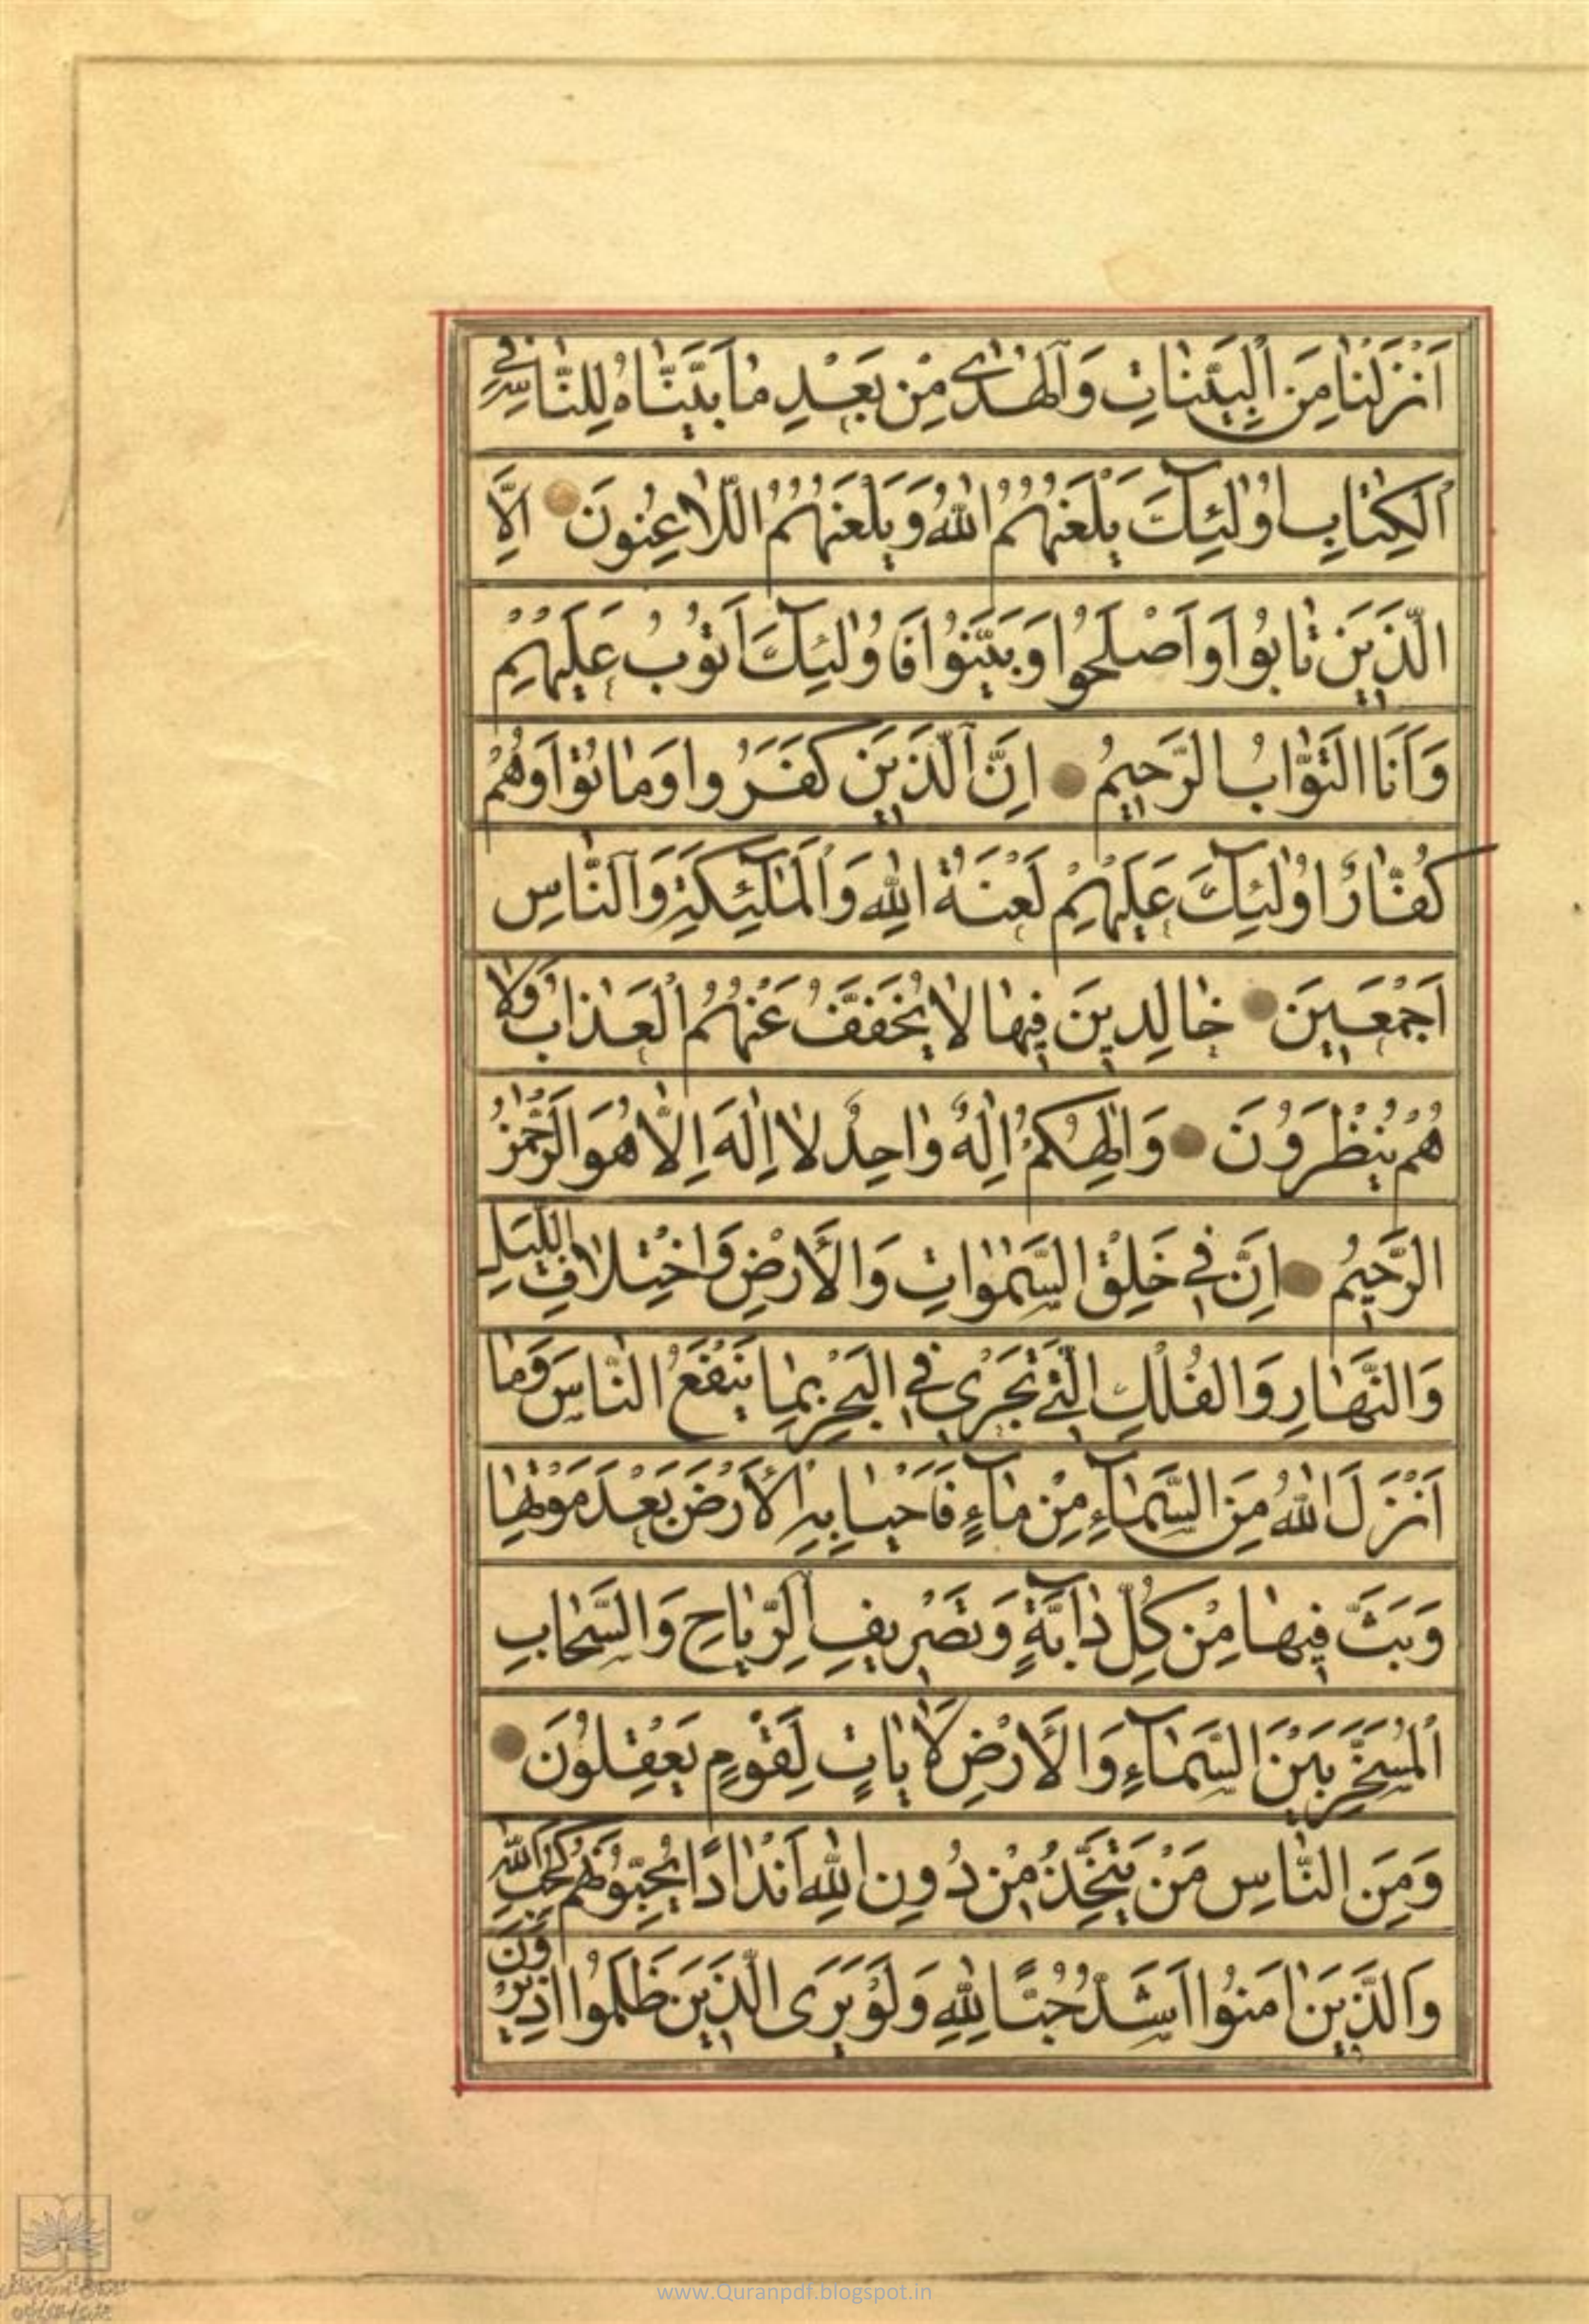 اَنْزَلْنٰا مِنَ الْبَيِّنٰاتِ وَالْهُدٰى مِنْ بَعْدِ مٰا بَيَّنّٰاهُ لِلنّٰاسِ فِي
الْكِتٰابِ اُولٰئِكَ يَلْعَنُهُمُ اللّٰهُ وَيَلْعَنُهُمُ اللّٰاعِنُونَ اِلَّا
الَّذِينَ تٰابُوا وَاَصْلَحُوا وَبَيَّنُوا فَاُولٰئِكَ اَتُوبُ عَلَيْهِمْ
وَاَنَا التَّوّٰابُ الرَّحِيمُ اِنَّ الَّذِينَ كَفَرُوا وَمٰاتُوا وَهُمْ
كُفّٰارٌ اُولٰئِكَ عَلَيْهِمْ لَعْنَةُ اللّٰهِ وَالْمَلٰئِكَةِ وَالنّٰاسِ
اَجْمَعِينَ خٰالِدِينَ فِيهٰا لٰا يُخَفَّفُ عَنْهُمُ الْعَذٰابُ وَلٰا
هُمْ يُنْظَرُونَ وَاِلٰهُكُمْ اِلٰهٌ وٰاحِدٌ لٰا اِلٰهَ اِلّٰا هُوَ الرَّحْمٰنُ
الرَّحِيمُ اِنَّ فِي خَلْقِ السَّمٰوٰاتِ وَالْاَرْضِ وَاخْتِلٰافِ اللَّيْلِ
وَالنَّهٰارِ وَالْفُلْكِ الَّتِي تَجْرِي فِي الْبَحْرِ بِمٰا يَنْفَعُ النّٰاسَ وَمٰا
اَنْزَلَ اللّٰهُ مِنَ السَّمٰاءِ مِنْ مٰاءٍ فَاَحْيٰا بِهِ الْاَرْضَ بَعْدَ مَوْتِهٰا
وَبَثَّ فِيهٰا مِنْ كُلِّ دٰابَّةٍ وَتَصْرِيفِ الرِّيٰاحِ وَالسَّحٰابِ
الْمُسَخَّرِ بَيْنَ السَّمٰاءِ وَالْاَرْضِ لَاٰيٰاتٍ لِقَوْمٍ يَعْقِلُونَ
وَمِنَ النّٰاسِ مَنْ يَتَّخِذُ مِنْ دُونِ اللّٰهِ اَنْدٰادًا يُحِبُّونَهُمْ كَحُبِّ اللّٰهِ
وَالَّذِينَ اٰمَنُوا اَشَدُّ حُبًّا لِلّٰهِ وَلَوْ يَرَى الَّذِينَ ظَلَمُوا اِذْ يَرَوْنَ
www.Quranpdf.blogspot.in